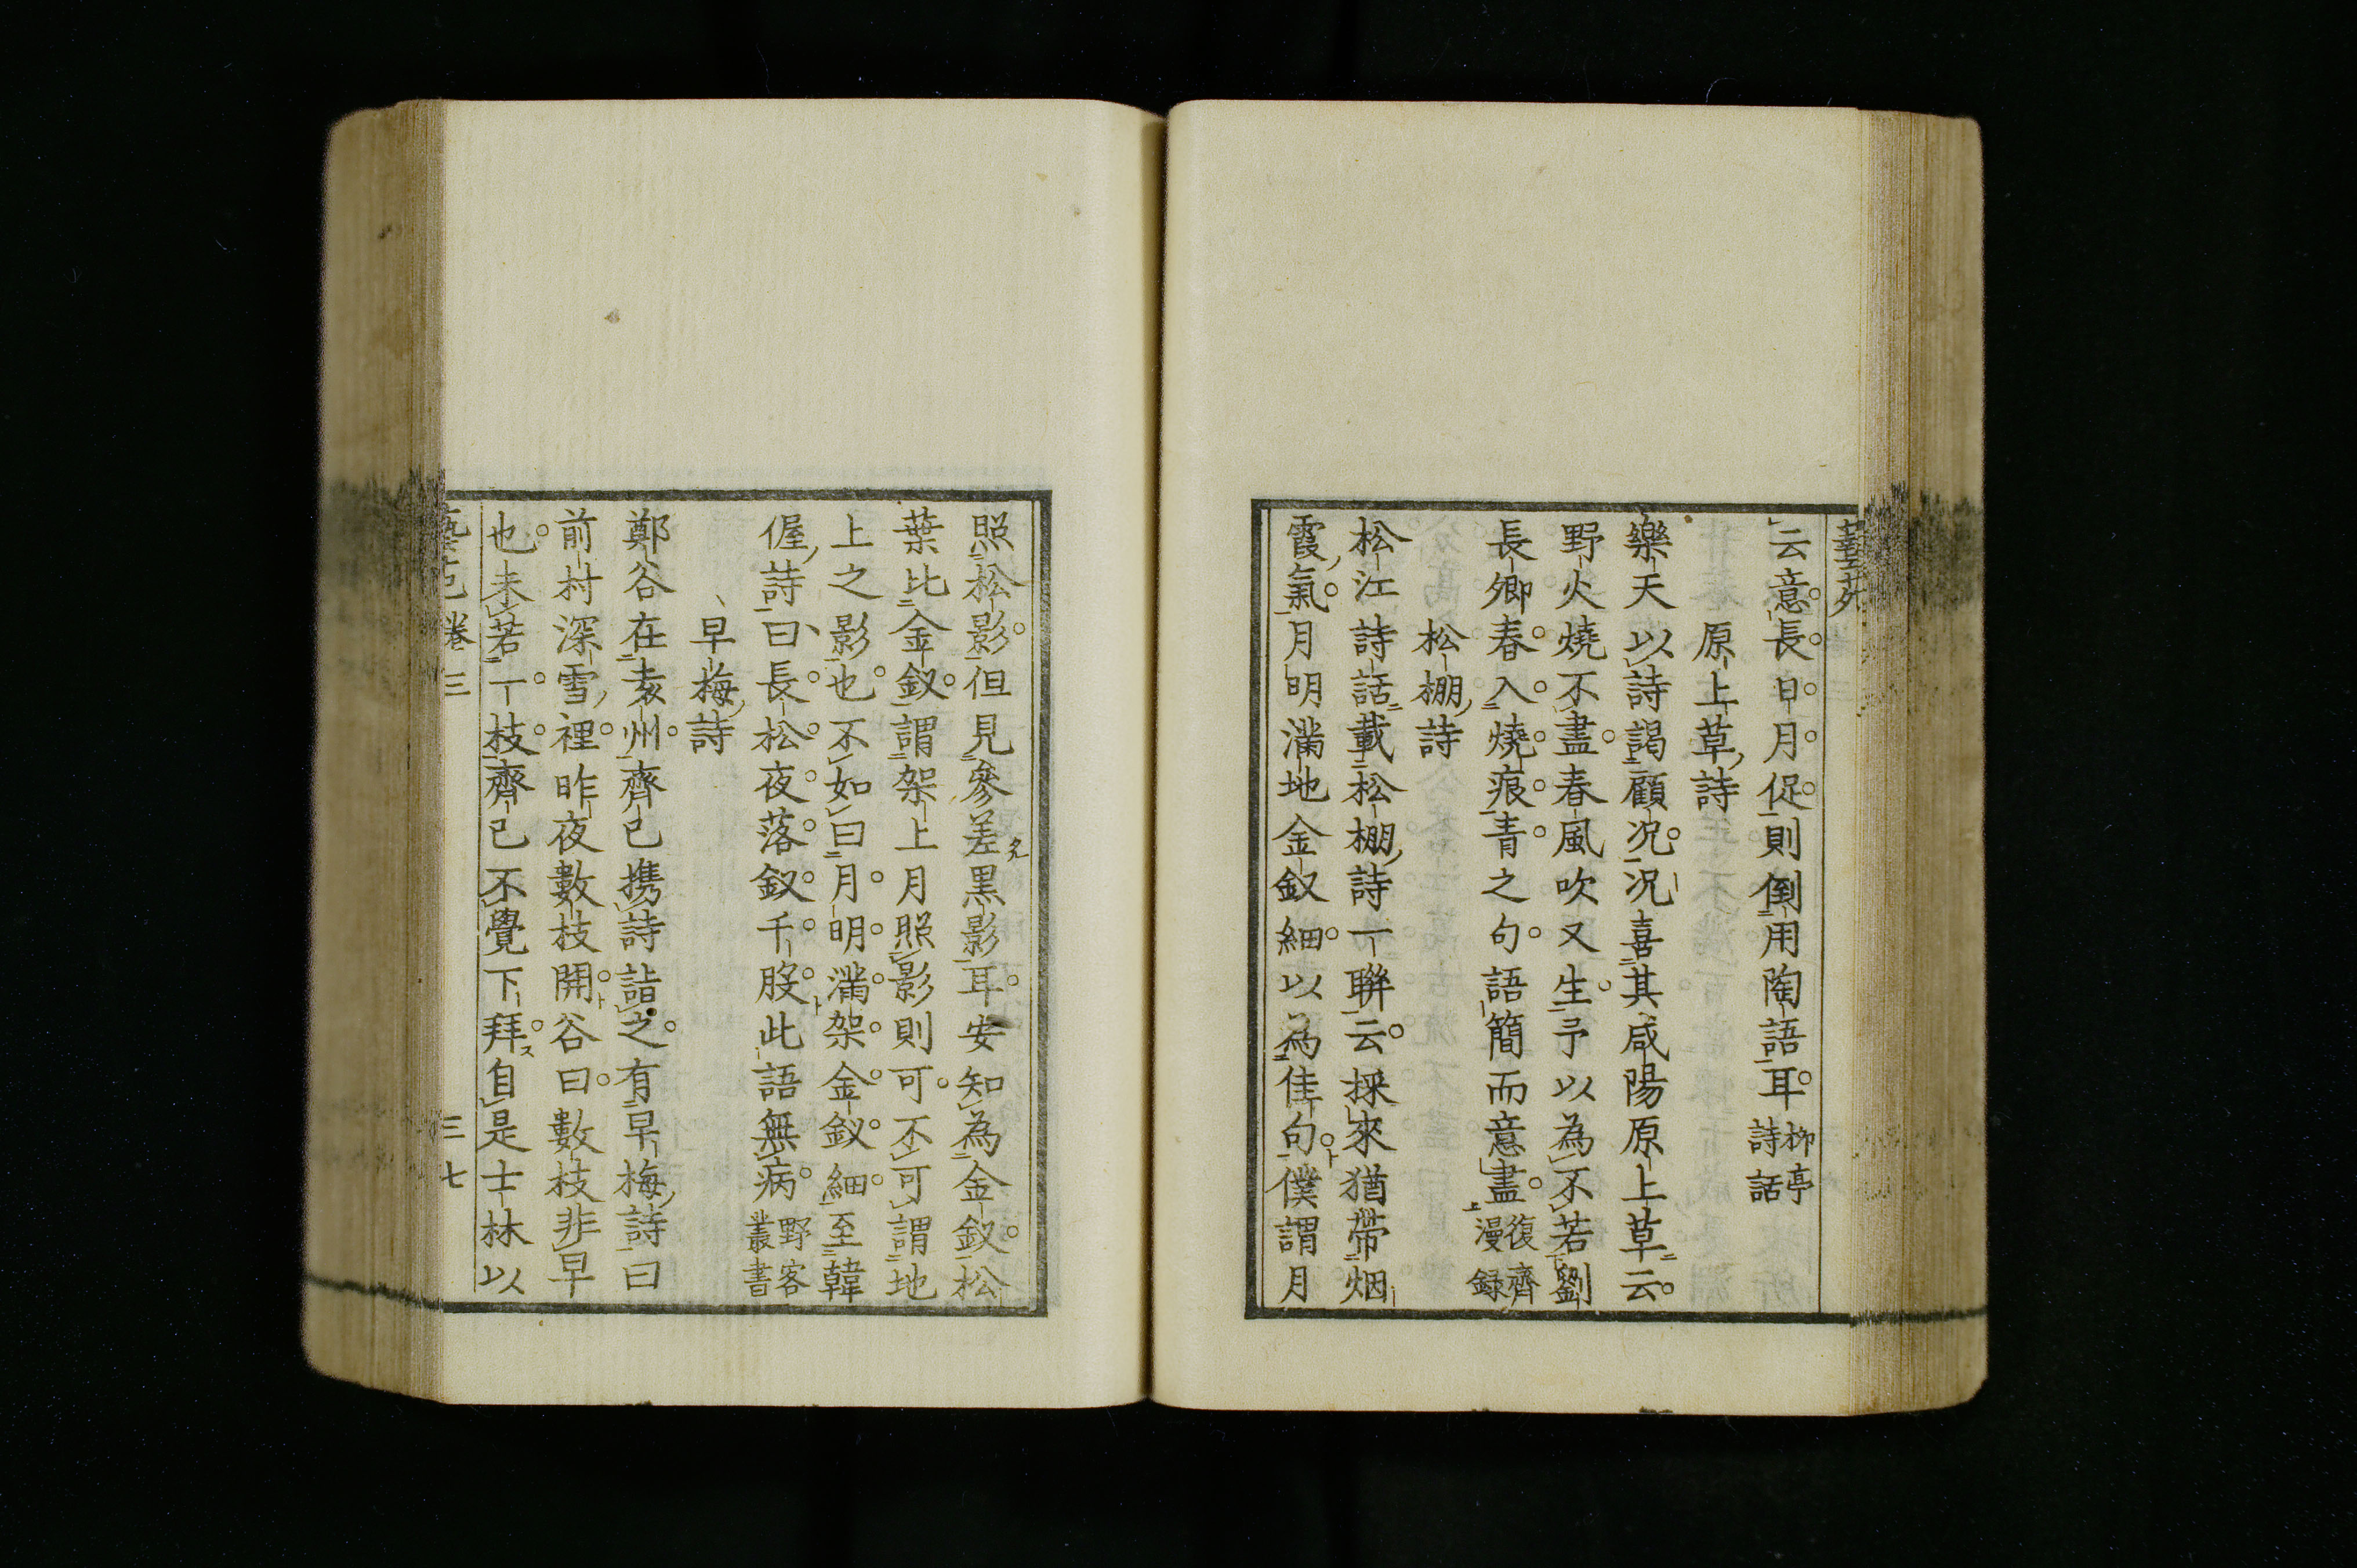 云意長日月促則倒用陶語耳柳亭詩話
原上草詩
樂天以詩謁顧况况喜其咸陽原上草云
野火燒不盡春風吹又生予以為不若劉
長卿春入燒痕青之句語簡而意盡復齊漫録
松棚詩
松江詩話載松棚詩一聯云採來猶帶烟
霞氣月明滿地金釵細以為佳句僕謂月
照松影但見參差黒影耳安知為金釵松
葉比金釵謂架上月照影則可不可謂地
上之影也不如曰月明滿架金釵細至韓
偓詩曰長松夜落釵千股此語無病野客叢書
早梅詩
鄭谷在袁州齊已携詩詣之有早梅詩曰
前村深雪裡昨夜數枝開谷曰數枝非早
也未若一枝齊已不覺下拜自是士林以
卷三
三七